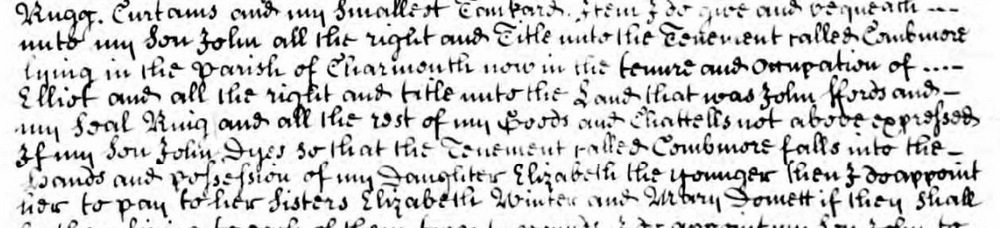 Rugg. Curtains and my smallest Tankard. Item I do give and bequeath ---
unto my Son John all the right and Title unto the Tenement called Combmore
lying in the parish of Charmouth now in the tenure and Occupation of ----
Elliot and all the right and title unto the Land that was John Fords and -
my Seal Ring and all the rest of my Goods and Chattells not above expressed
If my Son John Dyes so that the Tenement called Combmore falls into the -
hands and possession of my Daughter Elizabeth the younger then I do appoint
her to pay to her Sisters Elizabeth Winter and Mary Domett if they shall